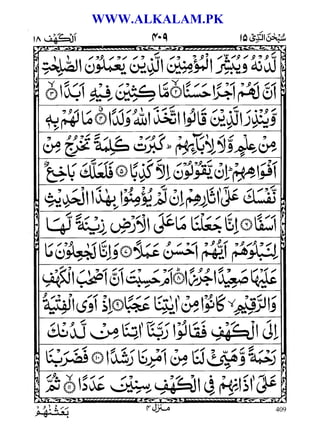 WWW.ALKALAM.PK
سُبْحٰنَ الَّذِيْۤ ١٥
٤٠٩
اَلْكَهْف ١٨
لَّدُنْهُ وَيُبَشِّرَ الْمُؤْمِنِيْنَ الَّذِيْنَ يَعْمَلُوْنَ الصّٰلِحٰتِ
اَنَّ لَهُمْ اَجْرًا حَسَنًا ۝٢ مَّاكِثِيْنَ فِيْهِ اَبَدًا ۝٣
وَّيُنْذِرَ الَّذِيْنَ قَالُوا اتَّخَذَ اللّٰهُ وَلَدًا ۝٤ مَا لَهُمْ بِهٖ
مِنْ عِلْمٍ وَّلَا لِاٰبَآئِهِمْ ؕ كَبُرَتْ كَلِمَةً تَخْرُجُ مِنْ
اَفْوَاهِهِمْ ؕ اِنْ يَّقُوْلُوْنَ اِلَّا كَذِبًا ۝٥ فَلَعَلَّكَ بَاخِعٌ
نَّفْسَكَ عَلٰۤى اٰثَارِهِمْ اِنْ لَّمْ يُؤْمِنُوْا بِهٰذَا الْحَدِيْثِ
اَسَفًا ۝٦ اِنَّا جَعَلْنَا مَا عَلَى الْاَرْضِ زِيْنَةً لَّهَا
لِنَبْلُوَهُمْ اَيُّهُمْ اَحْسَنُ عَمَلًا ۝٧ وَاِنَّا لَجٰعِلُوْنَ مَا
عَلَيْهَا صَعِيْدًا جُرُزًا ۝٨ اَمْ حَسِبْتَ اَنَّ اَصْحٰبَ الْكَهْفِ
وَالرَّقِيْمِ كَانُوْا مِنْ اٰيٰتِنَا عَجَبًا ۝٩ اِذْ اَوَى الْفِتْيَةُ
اِلَى الْكَهْفِ فَقَالُوْا رَبَّنَاۤ اٰتِنَا مِنْ لَّدُنْكَ
رَحْمَةً وَّهَيِّئْ لَنَا مِنْ اَمْرِنَا رَشَدًا ۝١٠ فَضَرَبْنَا
عَلٰۤى اٰذَانِهِمْ فِى الْكَهْفِ سِنِيْنَ عَدَدًا ۝١١ ثُمَّ
بَعَثْنٰهُمْ
منزل ٤
409